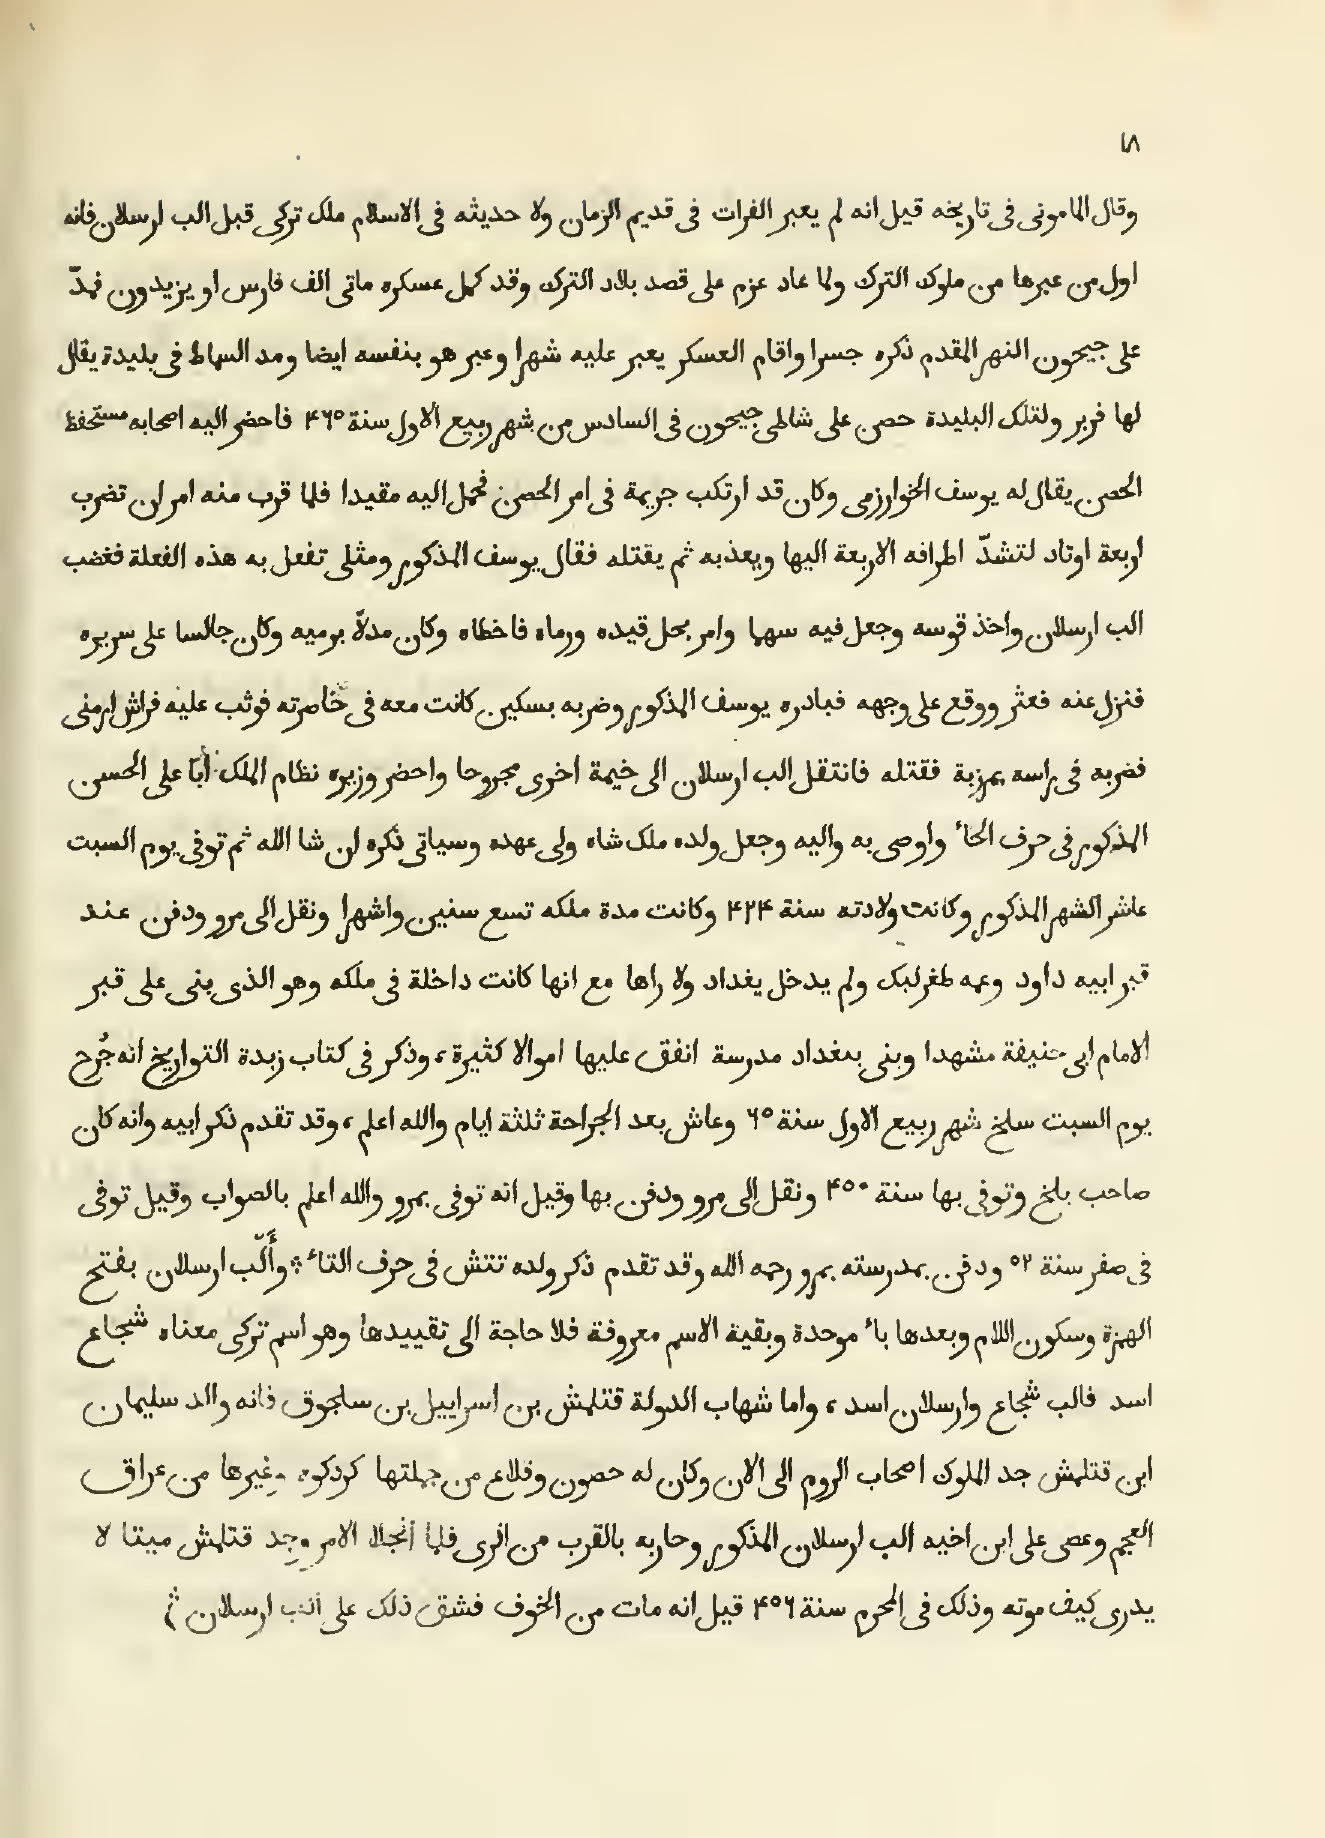 ١٨
وقال المامونى فى تاريخه قيل انه لم يعبر الفرات فى قديم الزمان ولا حديثه فى الاسلام ملك تركى قبل الب ارسلان فانه
اول من عبرها من ملوك الترك ولما عاد عزم على قصد بلاد الترك وقد كمل عسكره ماتى الف فارس او يزيدون فمدّ
على جيحون النهر المقدم ذكره جسرا واقام العسكر يعبر عليه شهرا وعبر هو بنفسه ايضا ومد السماط فى بليدة يقال
لها فربر ولتلك البليدة حصن على شاطى جيحون فى السادس من شهر ربيع الاول سنة ۴۶۵ فاحضر اليه اصحابه مستحفظ
الحصن يقال له يوسف الخوارزمى وكان قد ارتكب جريمة فى امر الحصن فحمل اليه مقيدا فلما قرب منه امر ان تضرب
اربعة اوتاد لتشدّ اطرافه الاربعة اليها ويعذبه ثم يقتله فقال يوسف المذكور ومثلى تفعل به هذه الفعلة فغضب
الب ارسلان واخذ قوسه وجعل فيه سهما وامر بحل قيده ورماه فاخطاه وكان مدلّا برميه وكان جالسا على سريره
فنزل عنه فعثر ووقع على وجهه فبادره يوسف المذكور وضربه بسكين كانت معه فى خاصرته فوثب عليه فراش ارمنى
فضربه فى راسه بمرزبة فقتله فانتقل الب ارسلان الى خيمة اخرى مجروحا واحضر وزيره نظام الملك أبا على الحسن
المذكور فى حرف الحاء واوصى به واليه وجعل ولده ملك شاه ولى عهده وسياتى ذكره ان شا الله ثم توفى يوم السبت
عاشر الشهر المذكور وكانت ولادته سنة ۴۲۴ وكانت مدة ملكه تسع سنين واشهرا ونقل الى مرو ودفن عند
قبر ابيه داود وعمه طغرلبك ولم يدخل بغداد ولا راها مع انها كانت داخلة فى ملكه وهو الذى بنى على قبر
الامام ابى حنيفة مشهدا وبنى ببغداد مدرسة انفق عليها اموالا كثيرة ، وذكر فى كتاب زبدة التواريخ انه جُرح
يوم السبت سلخ شهر ربيع الاول سنة ۶۵ وعاش بعد الجراحة ثلثة ايام والله اعلم ، وقد تقدم ذكر ابيه وانه كان
صاحب بلخ وتوفى بها سنة ۴۵۰ ونقل إلى مرو ودفن بها وقيل انه توفى بمرو والله اعلم بالصواب وقيل توفى
فى صفر سنة ۵۲ ودفن بمدرسته بمرو رحمه الله وقد تقدم ذكر ولده تتش فى حرف التاء ؞ وأَلْب ارسلان بفتح
الهمزة وسكون اللام وبعدها باء موحدة وبقية الاسم معروفة فلا حاجة الى تقييدها وهو اسم تركى معناه شجاع
اسد فالب شجاع وارسلان اسد ، واما شهاب الدولة قتلمش بن اسراييل بن سلجوق فانه والد سليمان
ابن قتلمش جد الملوك اصحاب الروم الى الان وكان له حصون وقلاع من جملتها كردكوه وغيرها من عراق
العجم وعصى على ابن اخيه الب ارسلان المذكور وحاربه بالقرب من الرى فلما أنجلا الامر وجد قتلمش ميتا لا
يدرى كيف موته وذلك فى المحرم سنة ۴۵۶ قيل انه مات من الخوف فشق ذلك على الب ارسلان ؞